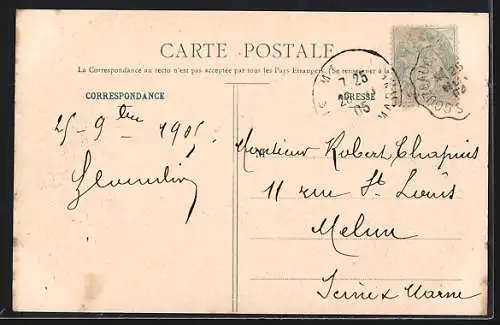 CARTE POSTALE
La Correspondance au recto n'est pas acceptée par tous les Pays Etrangers. (Se renseigner à la
CORRESPONDANCE
ADRESSE
7 25
05
25-9bre 1905
Monsieur Robert Chapuis
11 rue St Louis
Melun
Seine & Marne